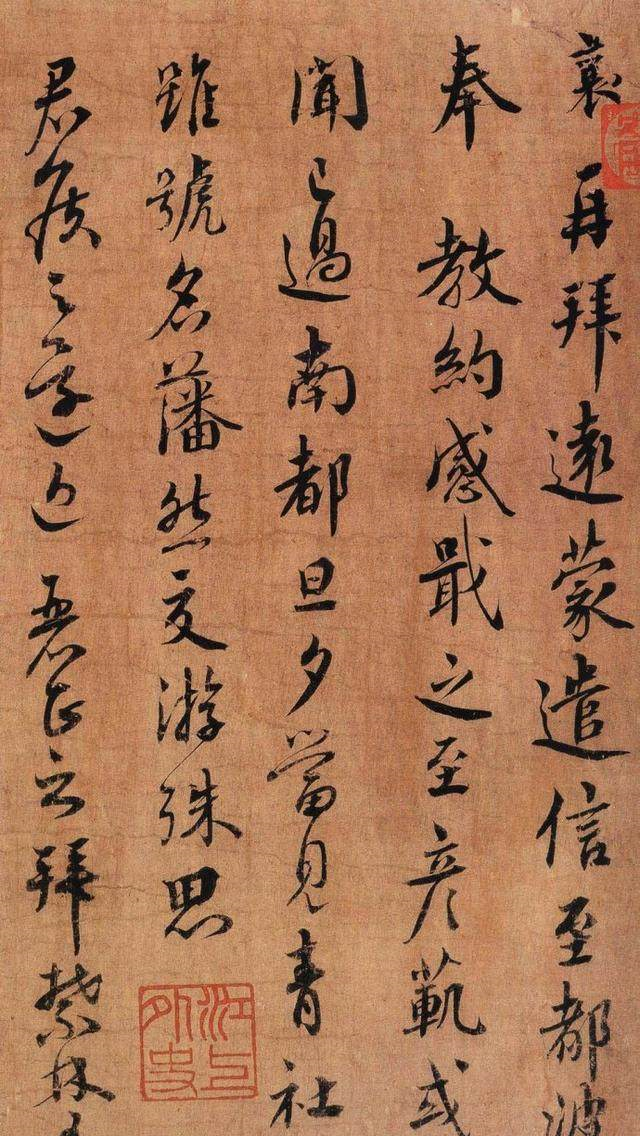 襄再拜遠蒙遣信至都波
奉 教約感戢之至彥範或
聞已過南都旦夕當見青社
雖號名藩然交游殊思
君侯之還近 麗正之拜禁林
江上外史